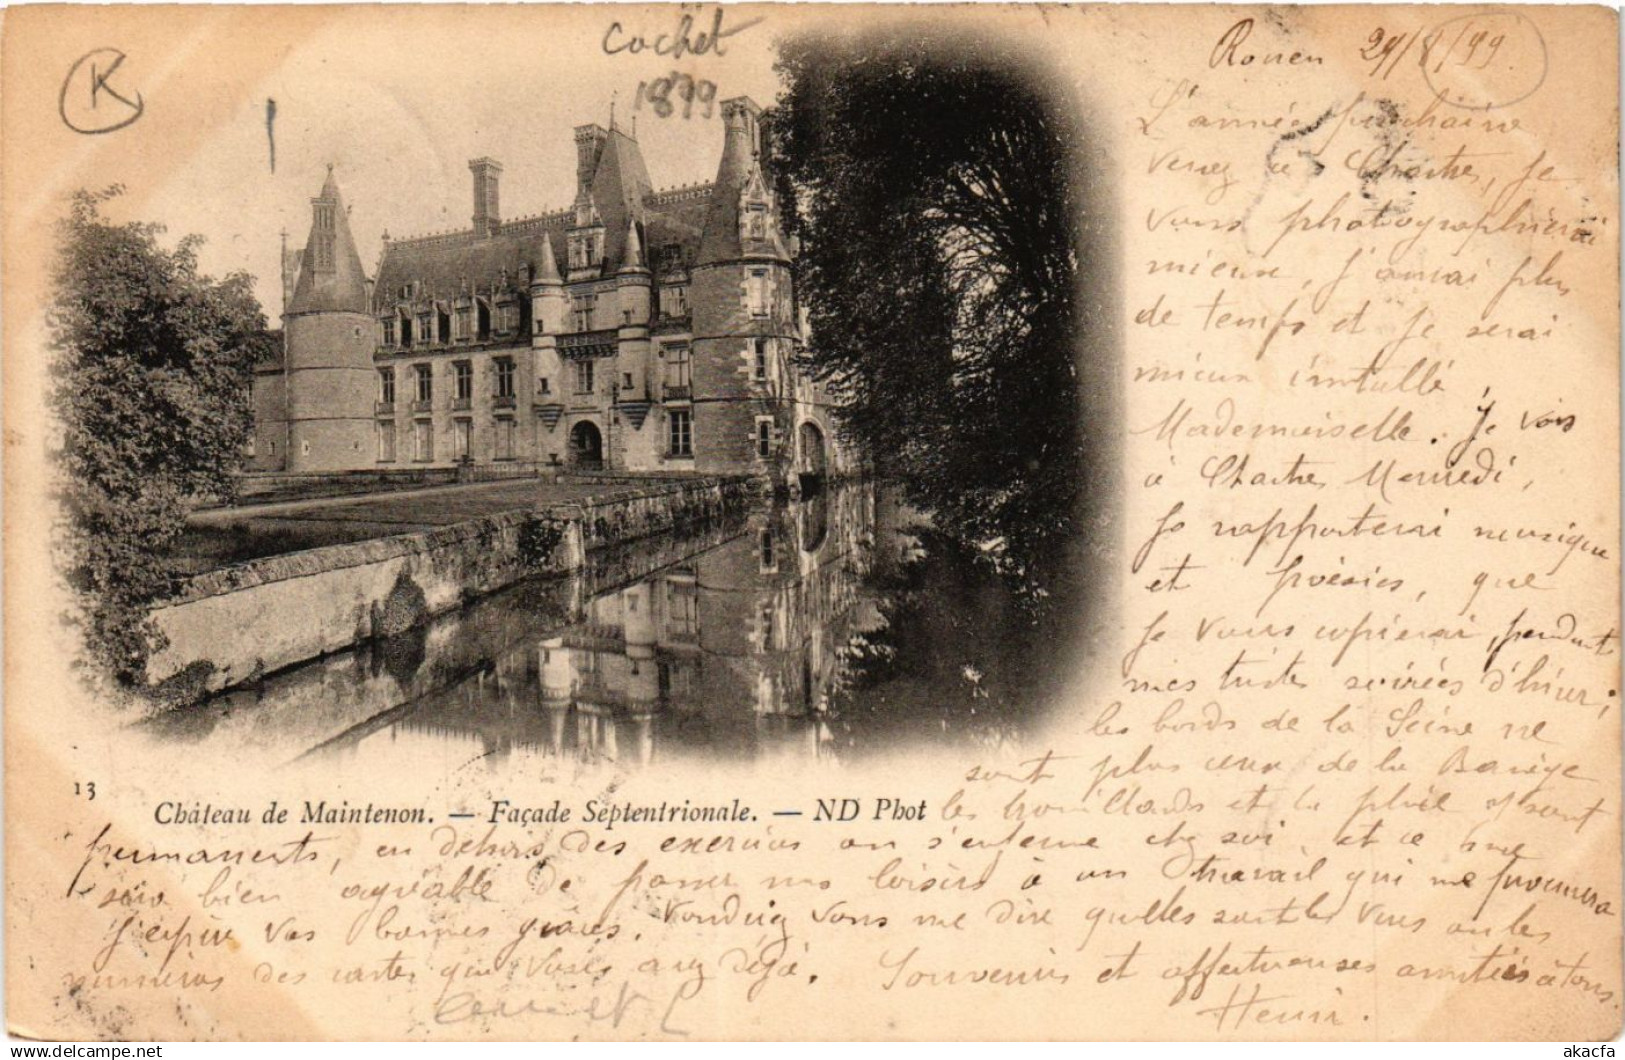 Cachet
1899
K
Rouen 29/8/99
L'année prochaine
venez à Chartres, je
vous photographierai
mieux, j'aurai plus
de temps et je serai
mieux installé
Mademoiselle. Je vais
à Chartres Mercredi,
Je rapporterai musique
et poésies, que
je vous copierai, pendant
mes tristes soirées d'hiver;
les bords de la Seine ne
sont plus ceux de la
les brouillards et la pluie y sont
permanents, en dehors des exercices on s'enferme chez soi, et ce me
sera bien agréable de passer mes loisirs à un travail qui me procurera
j'espère vos bonnes grâces. Voudriez vous me dire quelles sont les vues ou les
numéros des cartes que vous avez déjà. Souvenirs et affectueuses amitiés à tous.
Henri.
13
Château de Maintenon. — Façade Septentrionale. — ND Phot
akacfa